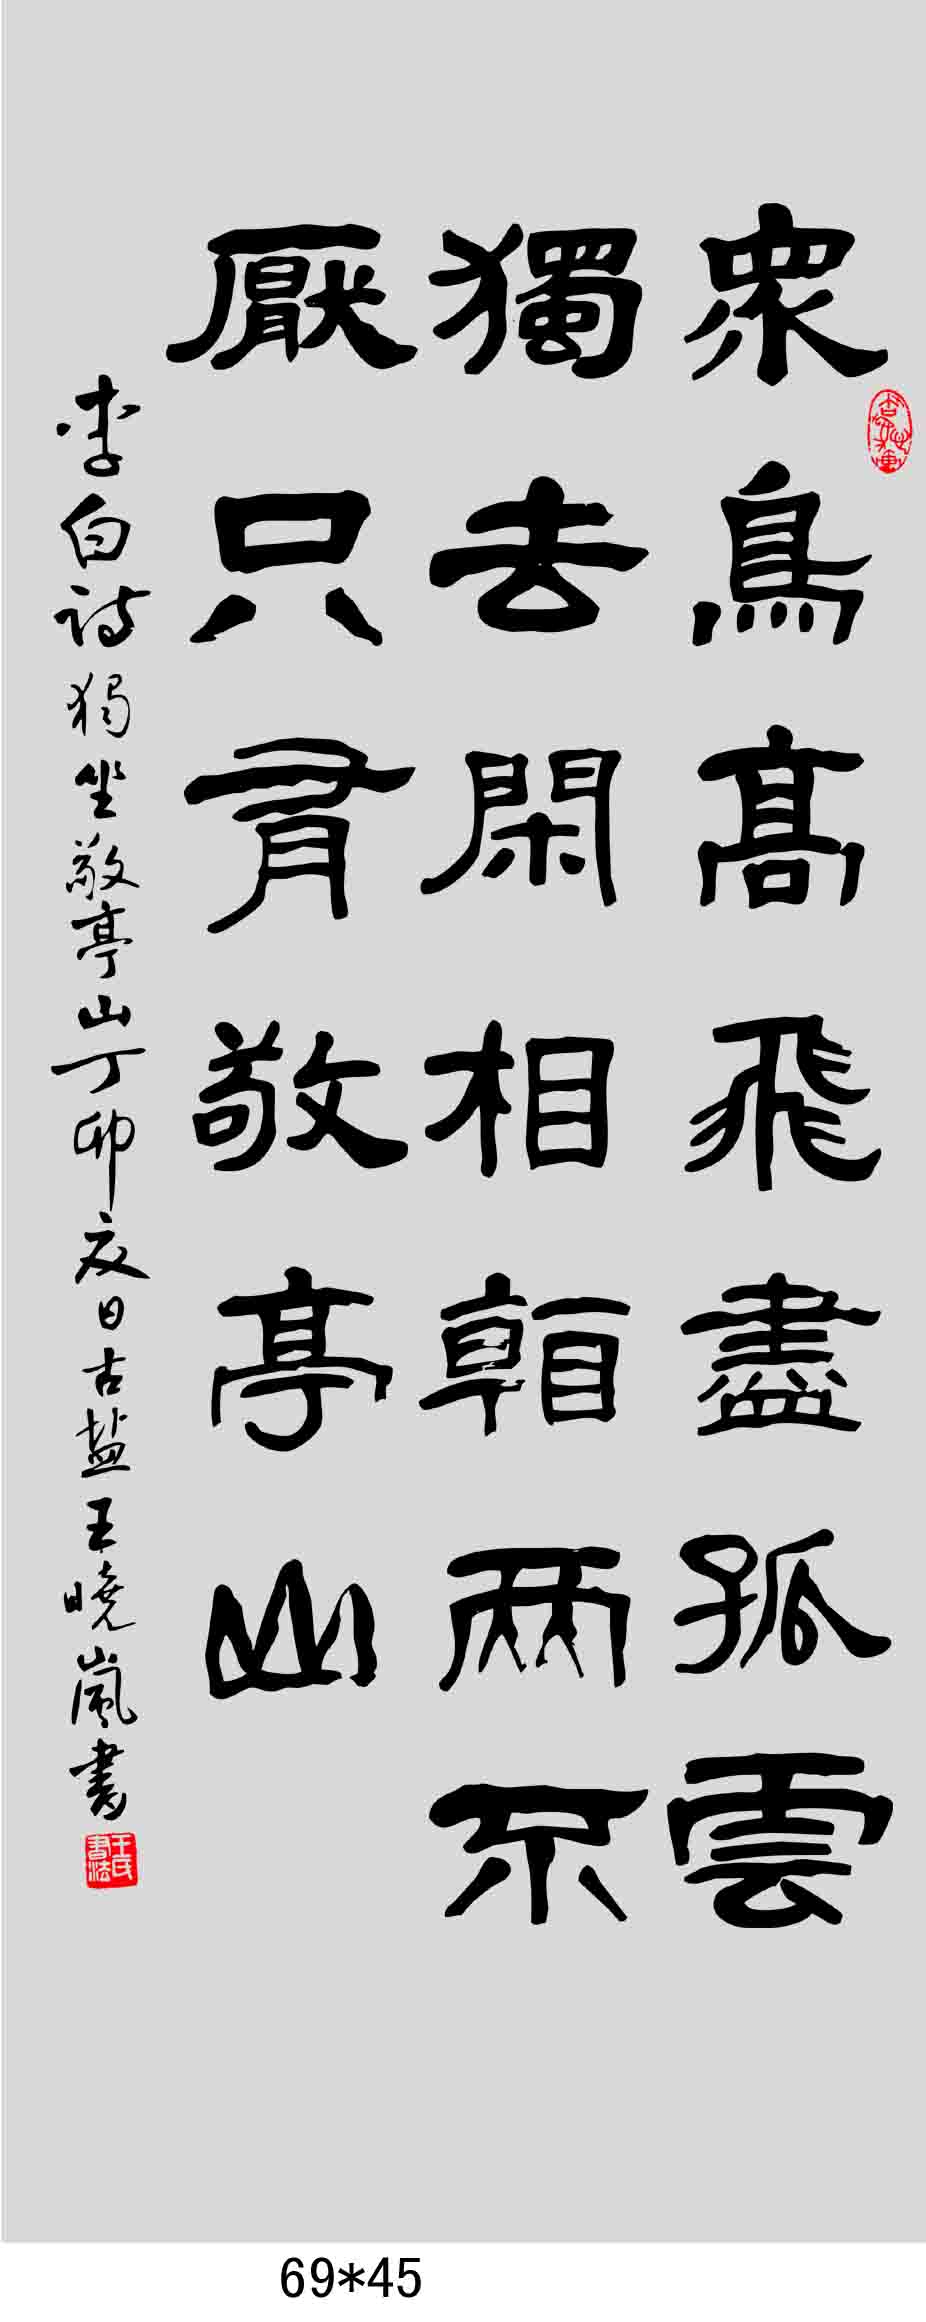 眾鳥高飛盡孤雲
獨去閑相看兩不
厭只有敬亭山
李白詩獨坐敬亭山丁卯夏日古盐王曉嵐書
王氏書法
69*45